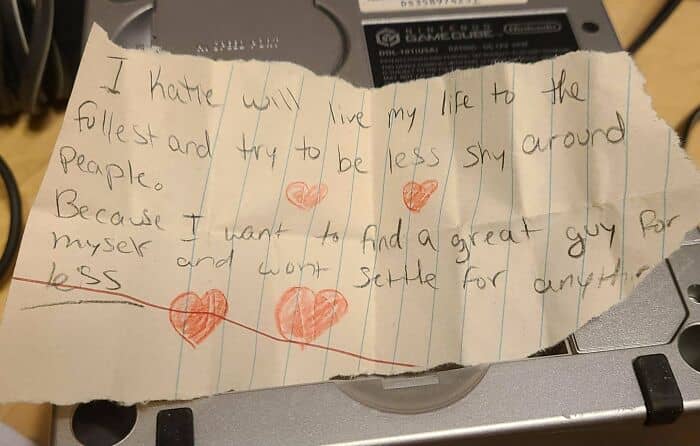 NINTENDO
GAMECUBE
Nintendo
DOL-101(USA)
I Katie will live my life to the
fullest and try to be less shy around
peaple.
Because I want to find a great guy for
myself and wont settle for anythin
less